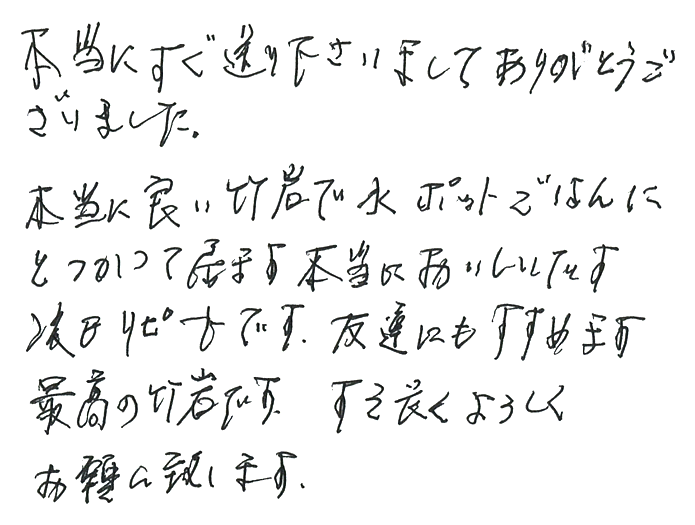 本当にすぐ送り下さいましてありがとうご
ざいました。
本当に良い竹岩で水 ポットごはんに
とつかって居ます本当においしいです
後日リピ方です。友達にもすすめます
最高の竹岩です。 すえ長くよろしく
お願い致します。